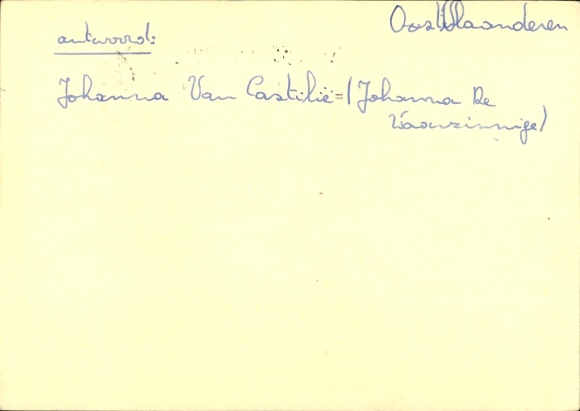 Oost Vlaanderen
antwoord:
Johanna Van Castilië = (Johanna De
Waanzinnige)